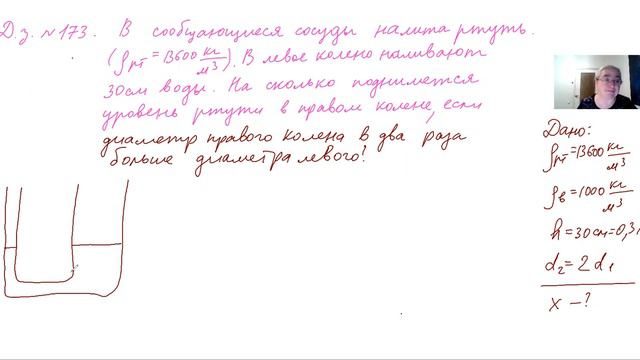 Д.з. №173. В сообщающиеся сосуды налита ртуть.
(ρрт = 13600 кг/м³). В левое колено наливают
30см воды. На сколько поднимется
уровень ртути в правом колене, если
диаметр правого колена в два раза
больше диаметра левого?
Дано:
ρрт = 13600 кг/м³
ρв = 1000 кг/м³
h = 30см = 0,3
d₂ = 2 d₁
x – ?